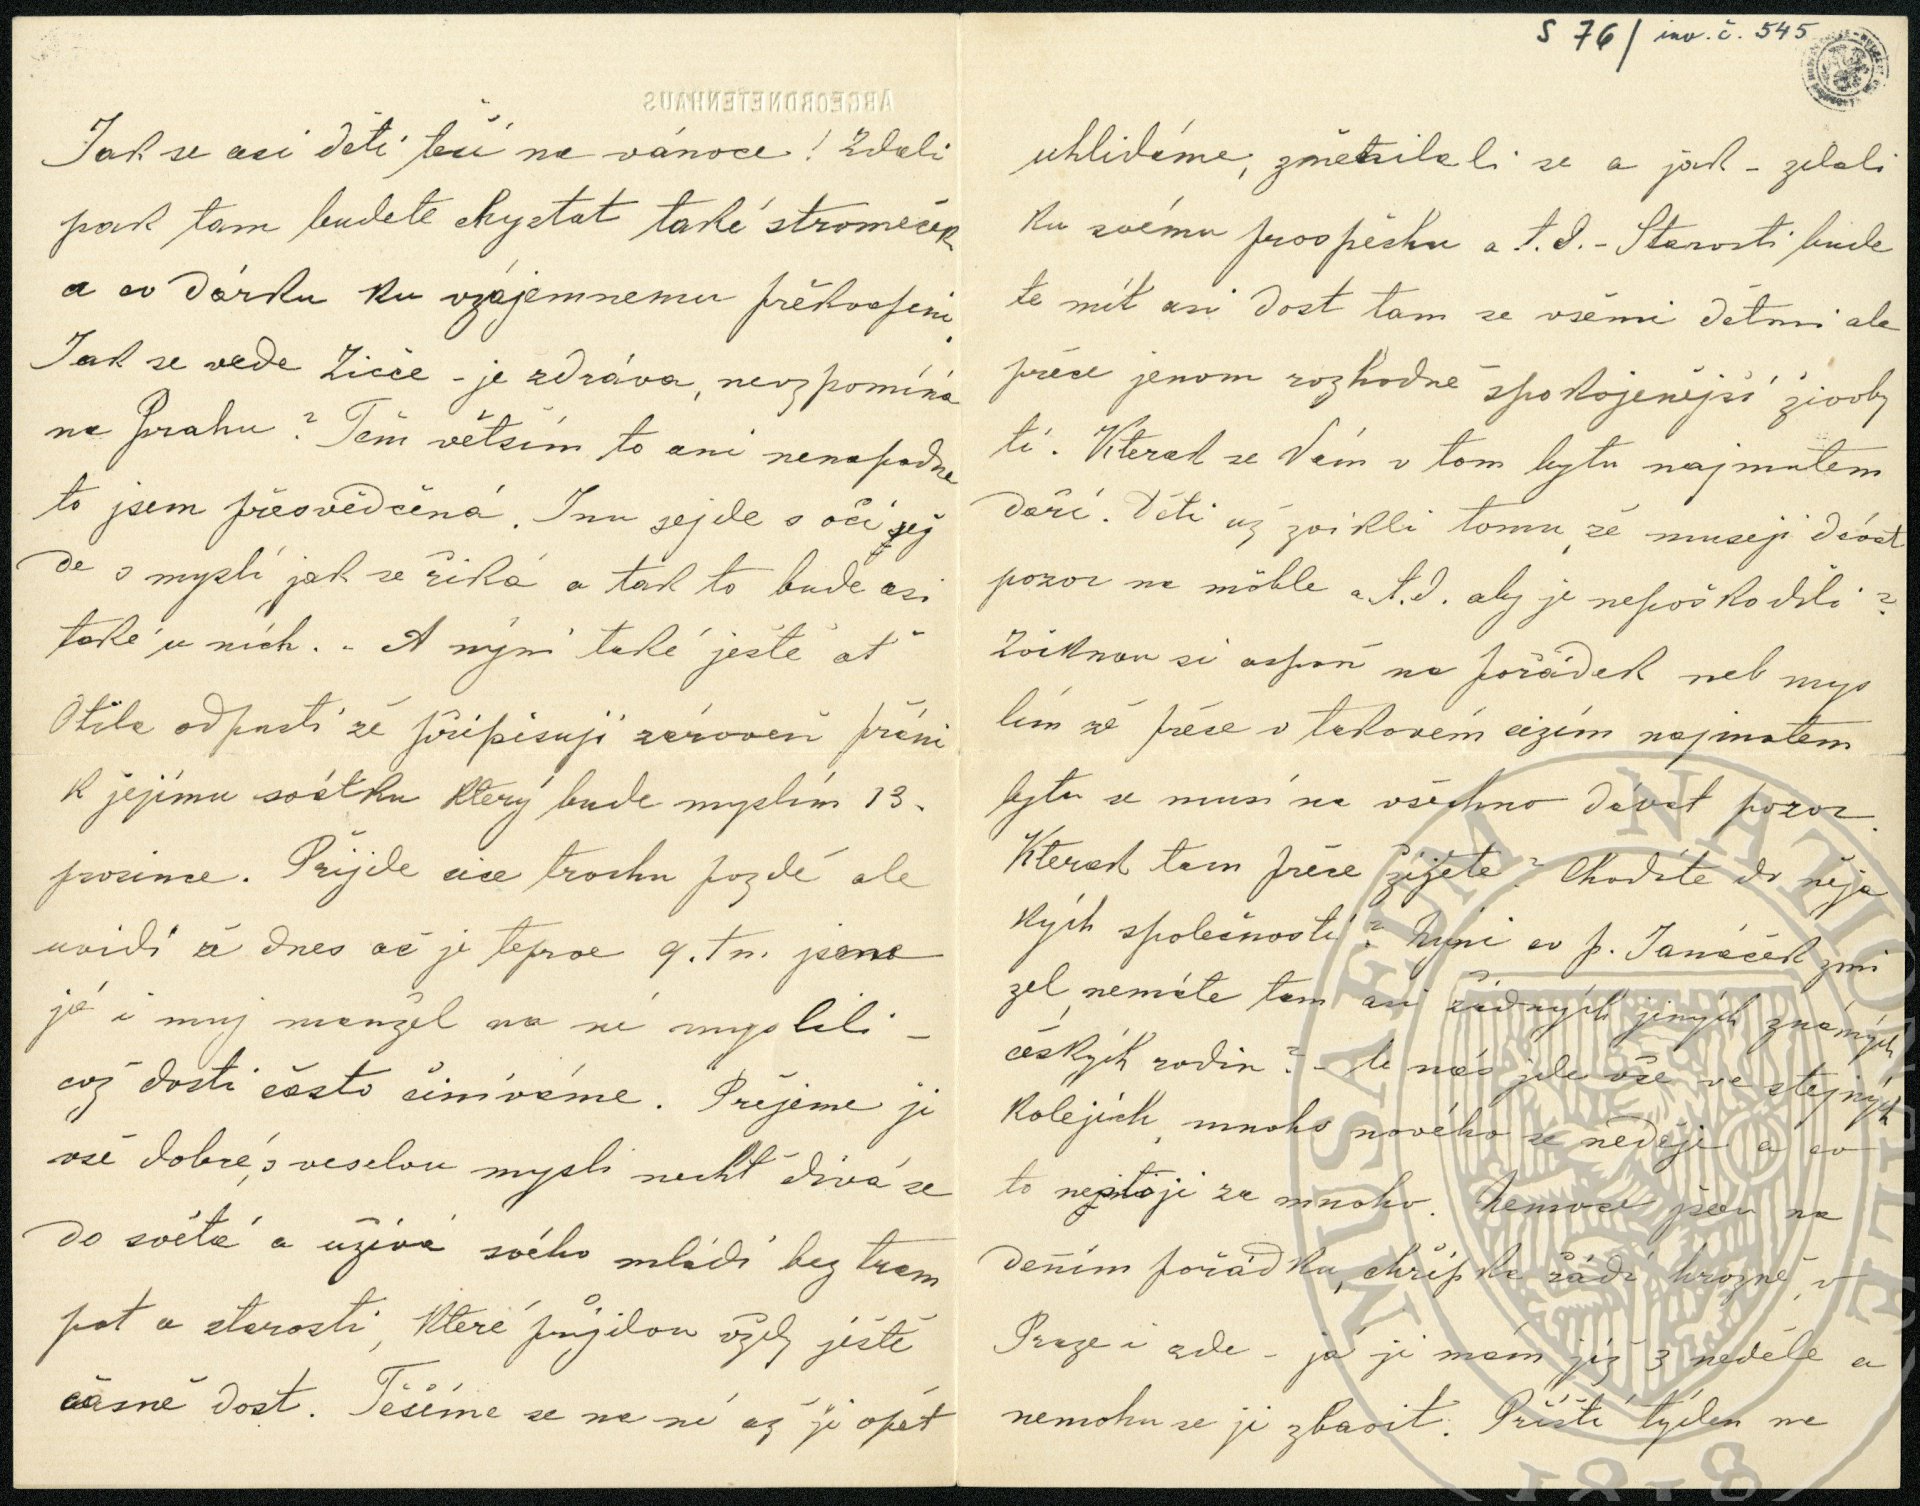 S 76/ inv. č. 545
ABGEORDNETENHAUS
Jak se asi děti těší na vánoce! Zdali
pak tam budete chystat také stromeček
a co dárku ku vzájemnemu překvapení.
Jak se vede Zicče - je zdráva, nevzpomíná
na Prahu? Těm větším to ani nenapadne
to jsem přesvědčená. Inu sejde s očí sej
de s myslí jak se říká a tak to bude asi
také u nich. - A nyní také ještě ať
Otila odpustí že připisuji zároveň přání
k jejímu svátku který bude myslím 13.
prosince. Přijde sice trochu pozdě ale
uvidí že dnes ač je teprve 9. t.m. jsme
já i muj manžel na ni myslili -
což dosti často činíváme. Přejeme jí
vše dobré, s veselou myslí nechť dívá se
do světa a užívá svého mládí bez tram
pot a starosti, které příjdou vždy ještě
časně dost. Těšíme se na ni až ji opět
uhlidáme, změnila li se a jak - zdali
ku svému prospěchu a t.d. - Starosti bude
te mít asi dost tam se všemi dětmi ale
přece jenom rozhodně spokojenější živoby
tí. Kterak se Vám v tom bytu najmutem
daří. Děti už zvikli tomu, že museji dávat
pozor na möble a.t.d. aby je nepoškodili?
Zviknou si aspoň na pořádek neb mys
lím že přece v takovém cizím najmutem
bytu se musí na všechno dávat pozor.
Kterak tam přece žijete? Chodíte do něja
kých společností? Nyní co p. Janáček zmi
zel, nemáte tam asi žádných jiných známých
českých rodin? - U nás jde vše ve stejných
kolejích, mnoho nového se neděje a co
to nestojí za mnoho. Nemoce jsou na
dením pořádku, chřipka řádí hrozně, v
Praze i zde - já ji mám již 3 neděle a
nemohu se jí zbavit. Příští týden na
MUSAEUM NATIONALE
1818